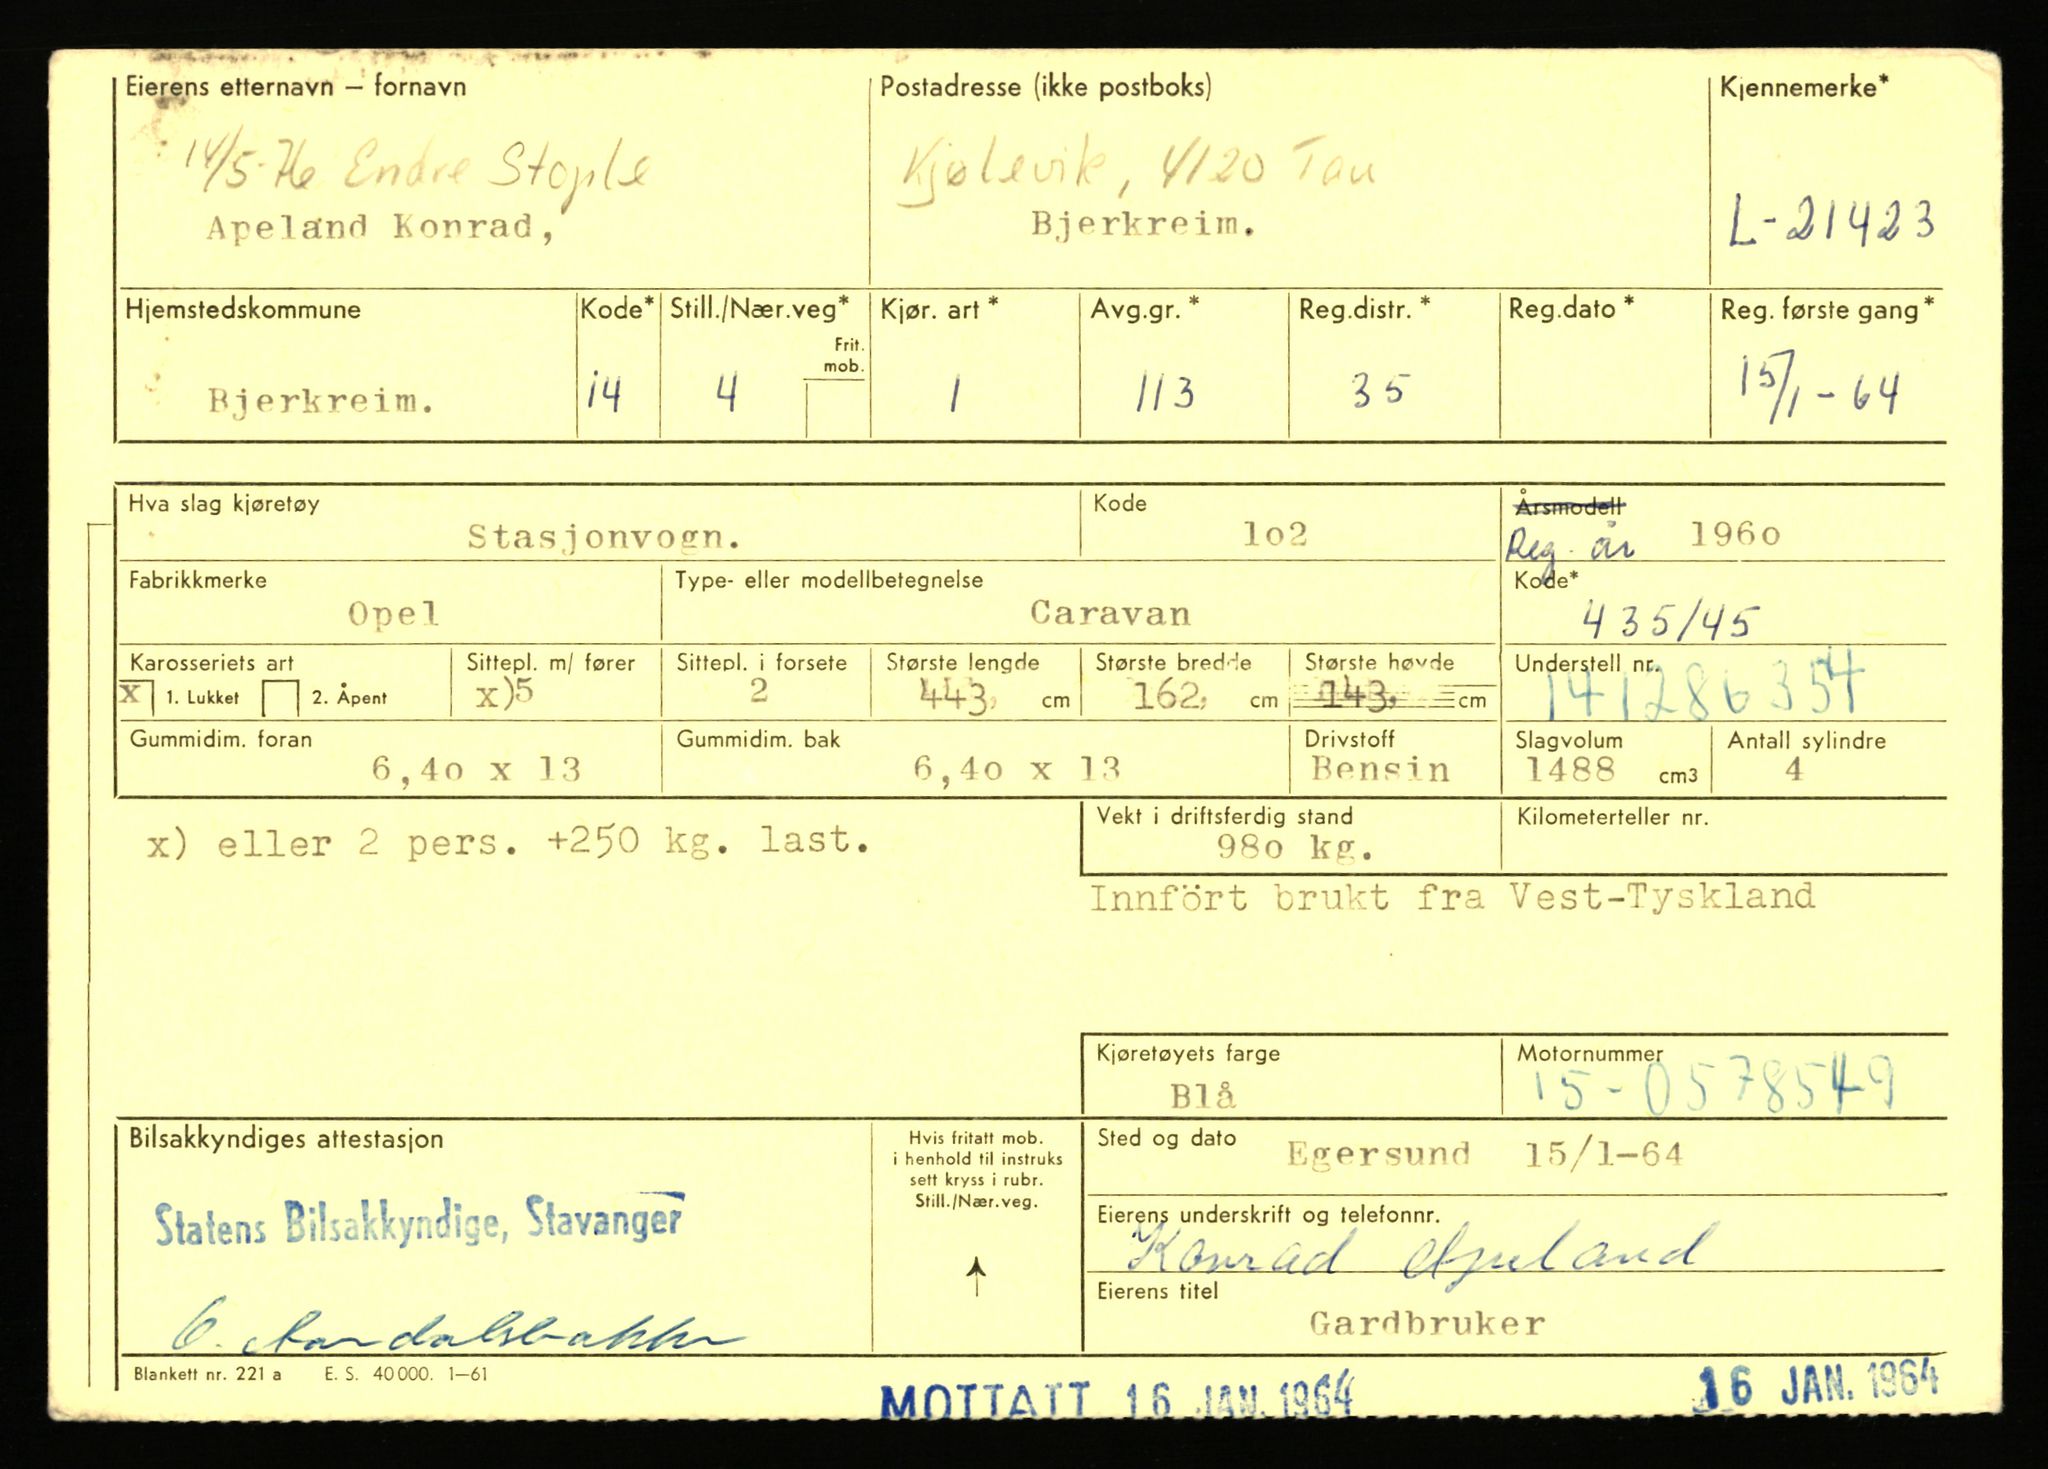 Eierens etternavn – fornavn
Postadresse (ikke postboks)
Kjennemerke*
14/5-76 Endre Stople
Kjølevik, 4120 Tau
Apeland Konrad,
Bjerkreim.
L-21423
Hjemstedskommune
Kode*
Still./Nær.veg*
Frit. mob.
Kjør. art*
Avg.gr.*
Reg.distr.*
Reg.dato*
Reg. første gang*
Bjerkreim.
14
4
1
113
35
15/1-64
Hva slag kjøretøy
Stasjonvogn.
Kode
1o2
Årsmodell
Reg. år
196o
Fabrikkmerke
Opel
Type- eller modellbetegnelse
Caravan
Kode*
435/45
Karosseriets art
x 1. Lukket 2. Åpent
Sittepl. m/ fører
x)5
Sittepl. i forsete
2
Største lengde
443, cm
Største bredde
162, cm
Største høyde
143, cm
Understell nr.
141286354
Gummidim. foran
6,4o x 13
Gummidim. bak
6,4o x 13
Drivstoff
Bensin
Slagvolum
1488 cm3
Antall sylindre
4
x) eller 2 pers. +250 kg. last.
Vekt i driftsferdig stand
98o kg.
Kilometerteller nr.
Innfört brukt fra Vest-Tyskland
Kjøretøyets farge
Blå
Motornummer
15-0578549
Bilsakkyndiges attestasjon
Statens Bilsakkyndige, Stavanger
Hvis fritatt mob.
i henhold til instruks
sett kryss i rubr.
Still./Nær.veg.
Sted og dato
Egersund 15/1-64
Eierens underskrift og telefonnr.
Konrad Apeland
Eierens titel
Gardbruker
Blankett nr. 221 a E. S. 40 000. 1–61
MOTTATT 16 JAN. 1964
16 JAN. 1964